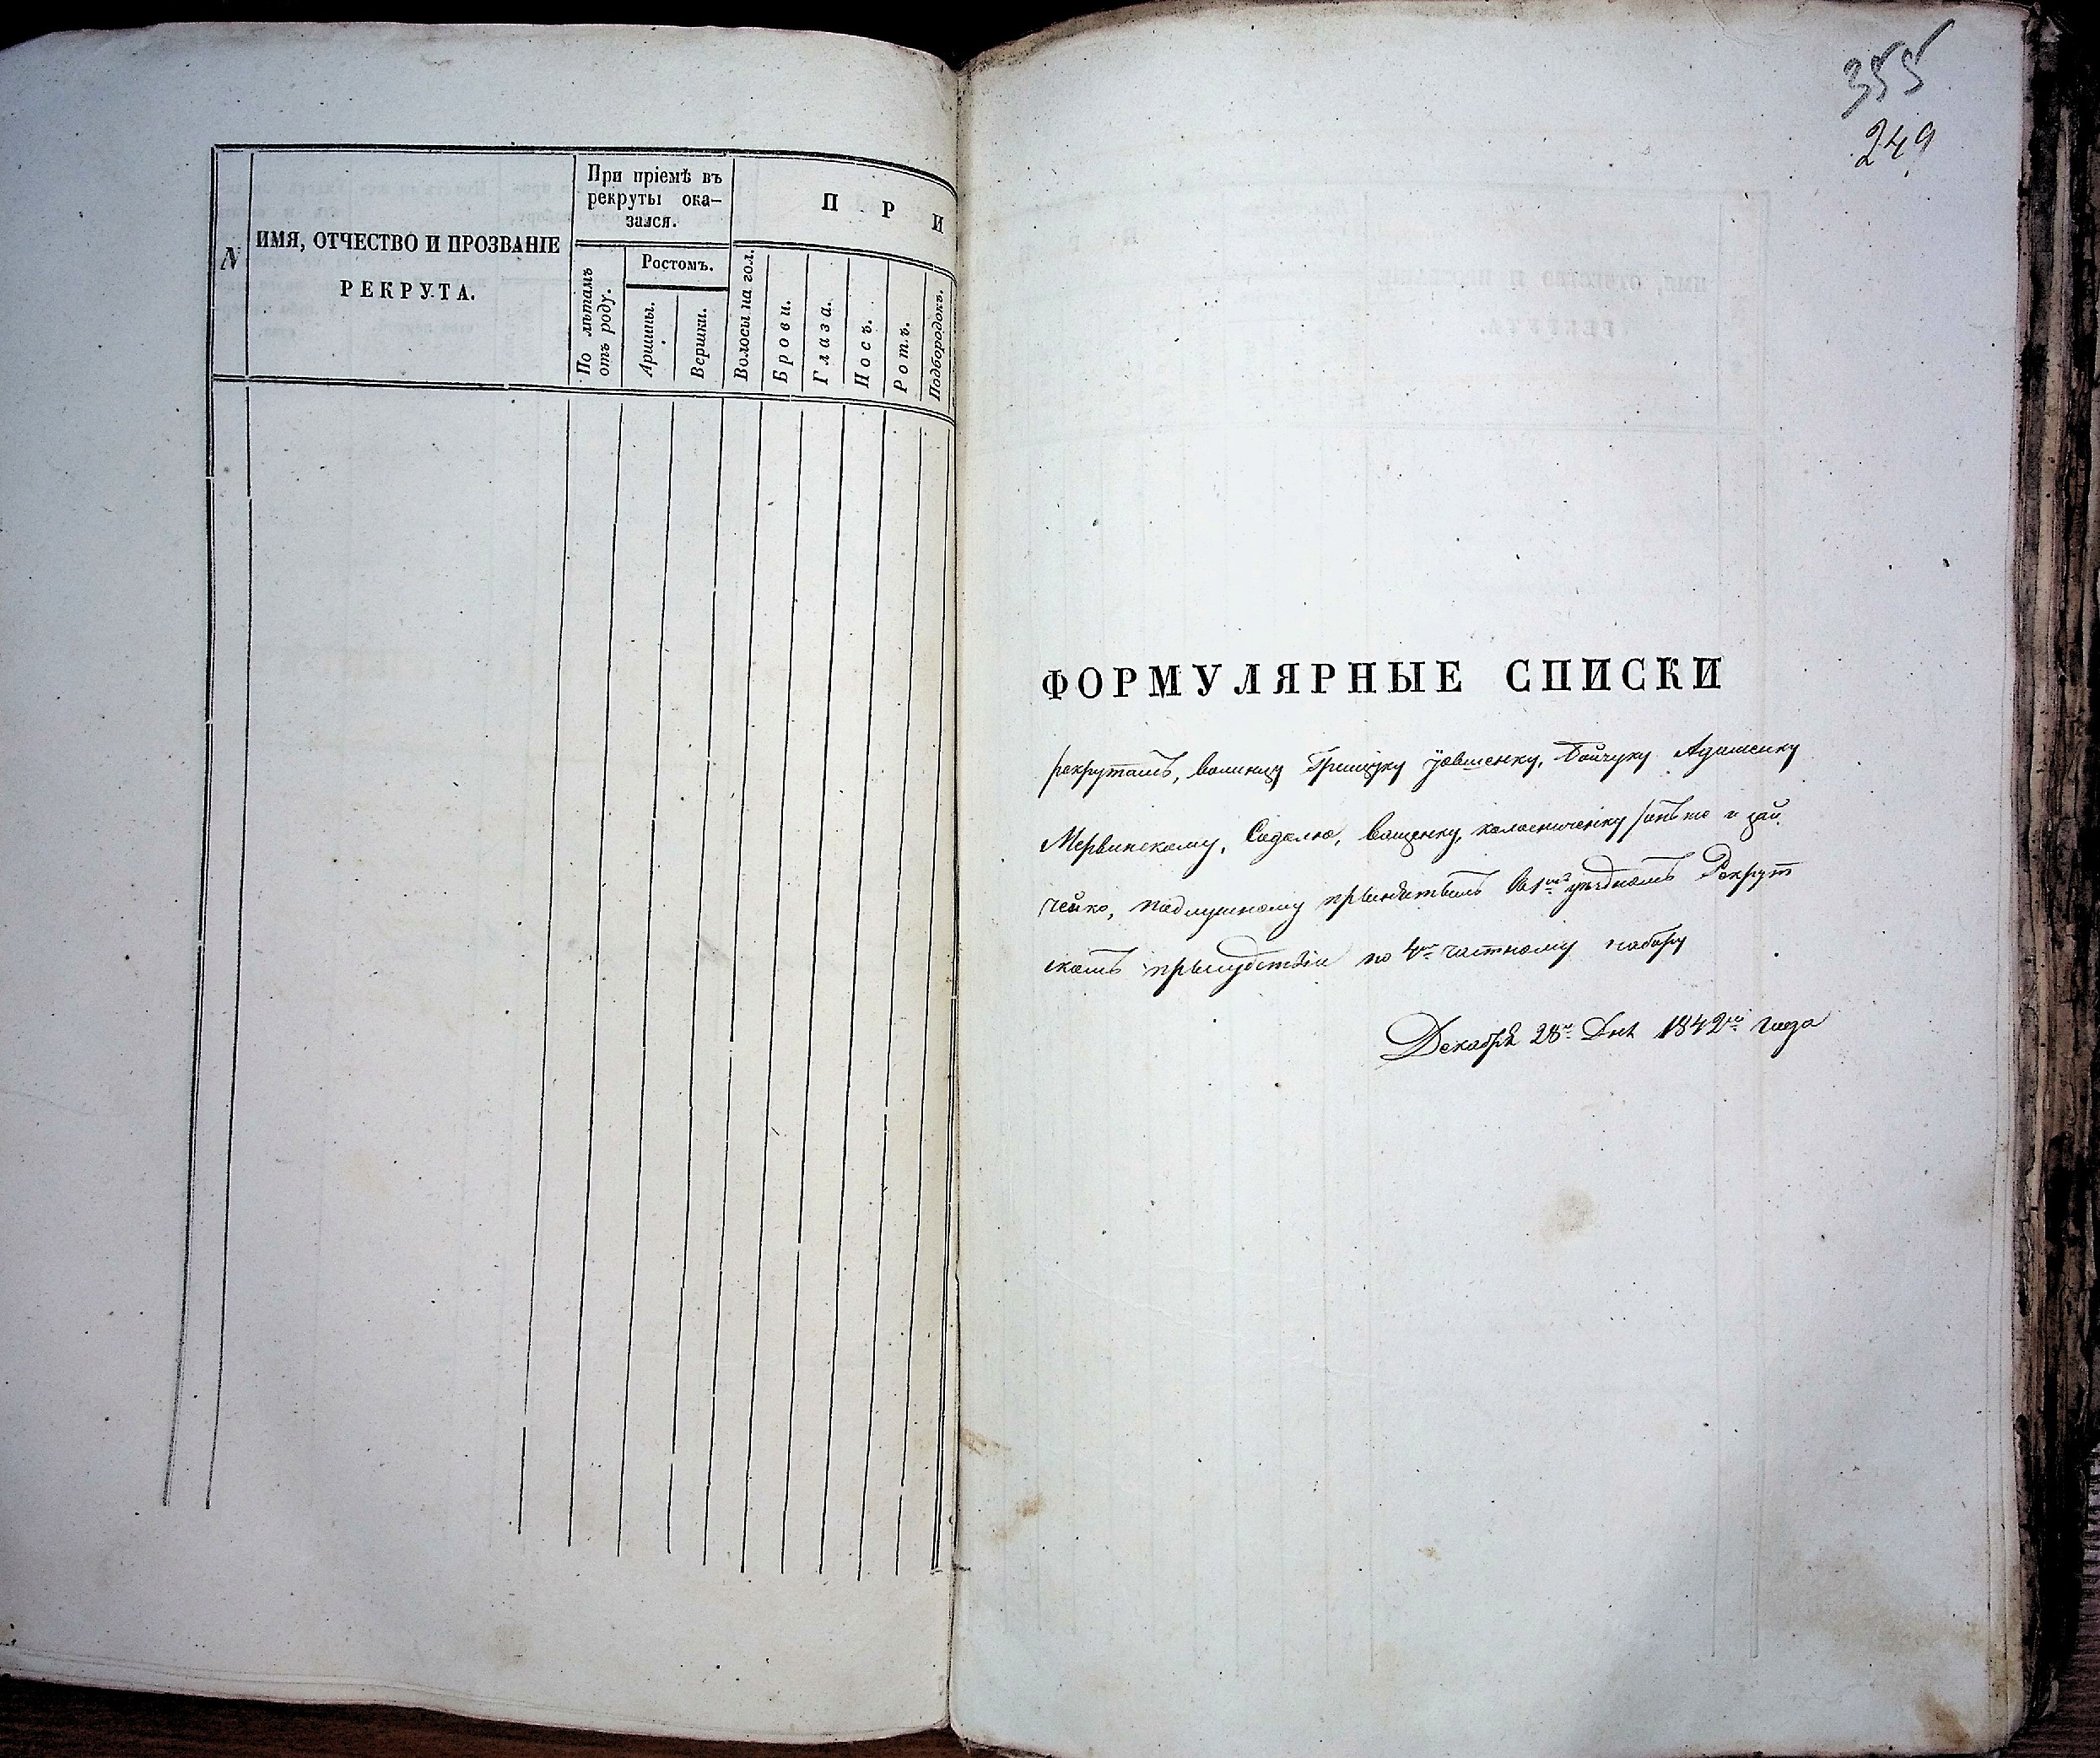 N
ИМЯ, ОТЧЕСТВО И ПРОЗВАНІЕ
РЕКРУТА.
При пріемѣ въ
рекруты ока-
зался.
По лѣтамъ
отъ роду.
Ростомъ.
Аршины.
Вершки.
П Р И
Волосы на гол.
Брови.
Глаза.
Носъ.
Ротъ.
Подбородокъ.
355
249
ФОРМУЛЯРНЫЕ СПИСКИ
рекрутамъ, Бойчуку Адаменку
Мервинскому, Ващенку, и Зай
ченко, принятымъ въ 1мъ уѣздномъ Рекрут
скомъ присудствіи по 4му частному набору
Декабря 28го Дня 1842го года